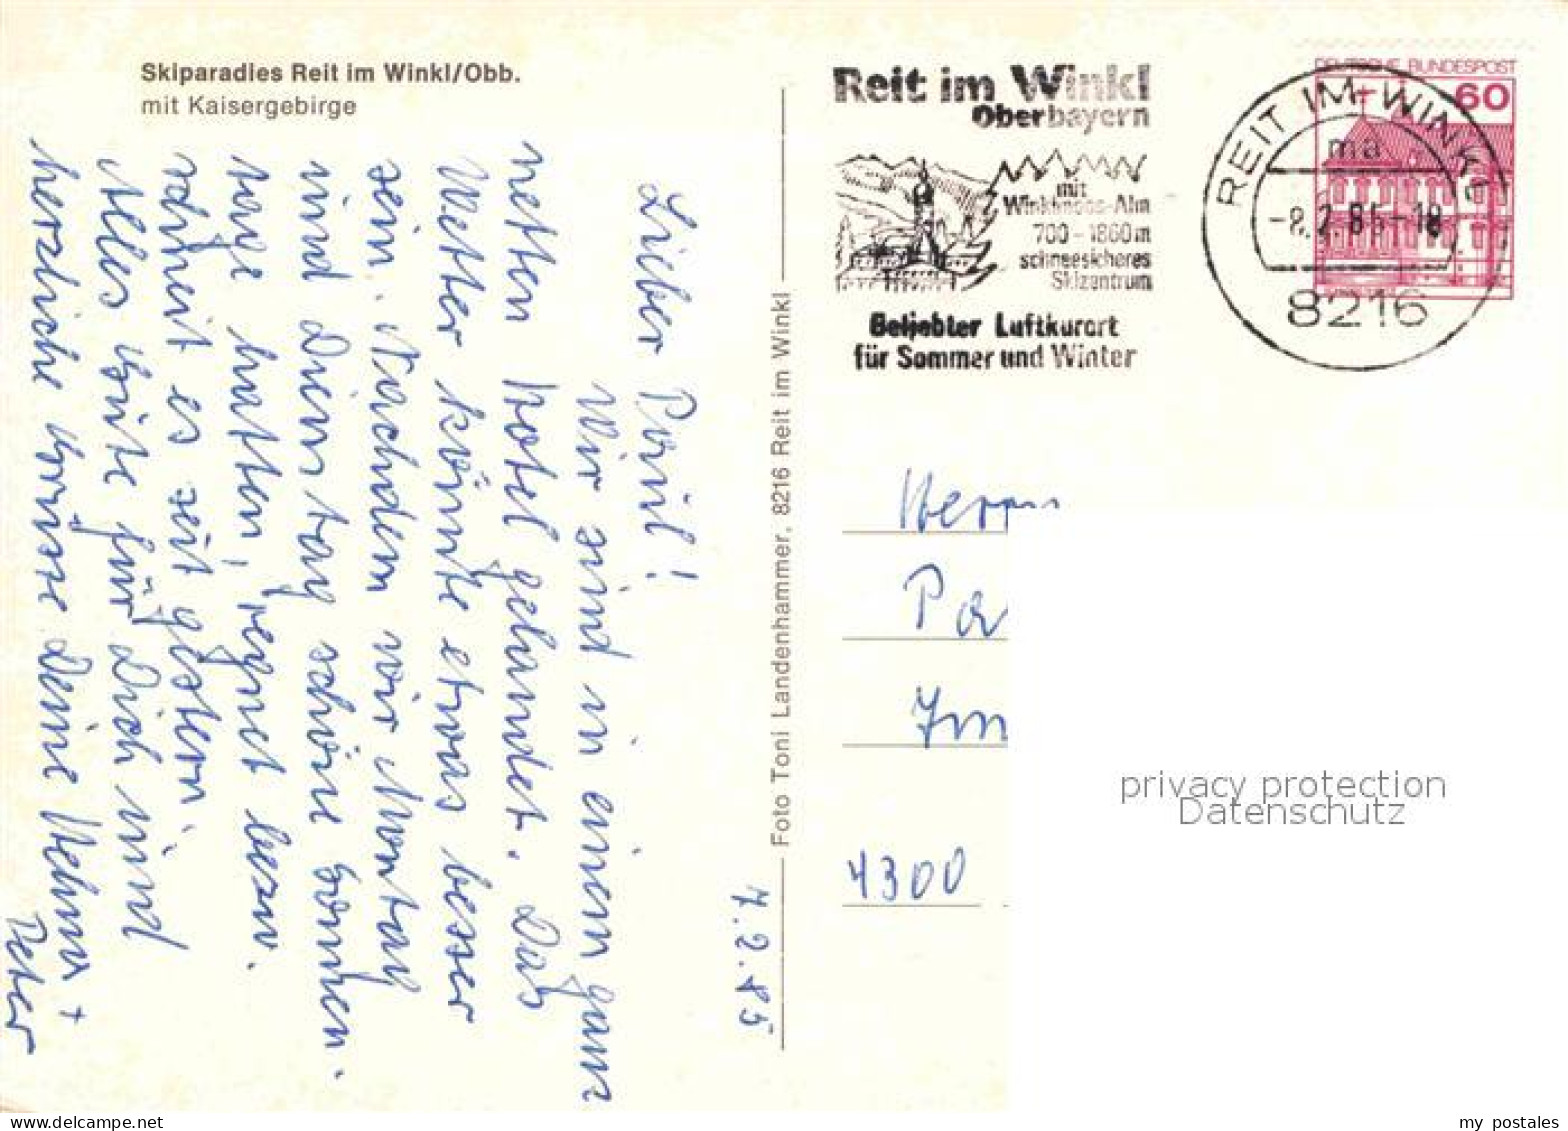 Skiparadies Reit im Winkl/Obb.
mit Kaisergebirge
7.2.85
Lieber Paul!
Wir sind in einem ganz
netten Hotel gelandet. Das
Wetter könnte etwas besser
sein. Nachdem wir Montag
und Dienstag schöne Sonnen-
tage hatten, regnet bezw.
schneit es seit gestern.
Alles Gute für Dich und
herzliche Grüsse Deine Helma +
Peter
Foto Toni Landenhammer, 8216 Reit im Winkl
Reit im Winkl
Oberbayern
mit
Winklmoos-Alm
700-1860m
schneesicheres
Skizentrum
Beliebter Luftkurort
für Sommer und Winter
DEUTSCHE BUNDESPOST
60
REIT IM WINKL
ma
-8.2.85-18
8216
Herrn
Pa
4300
privacy protection
Datenschutz
my postales